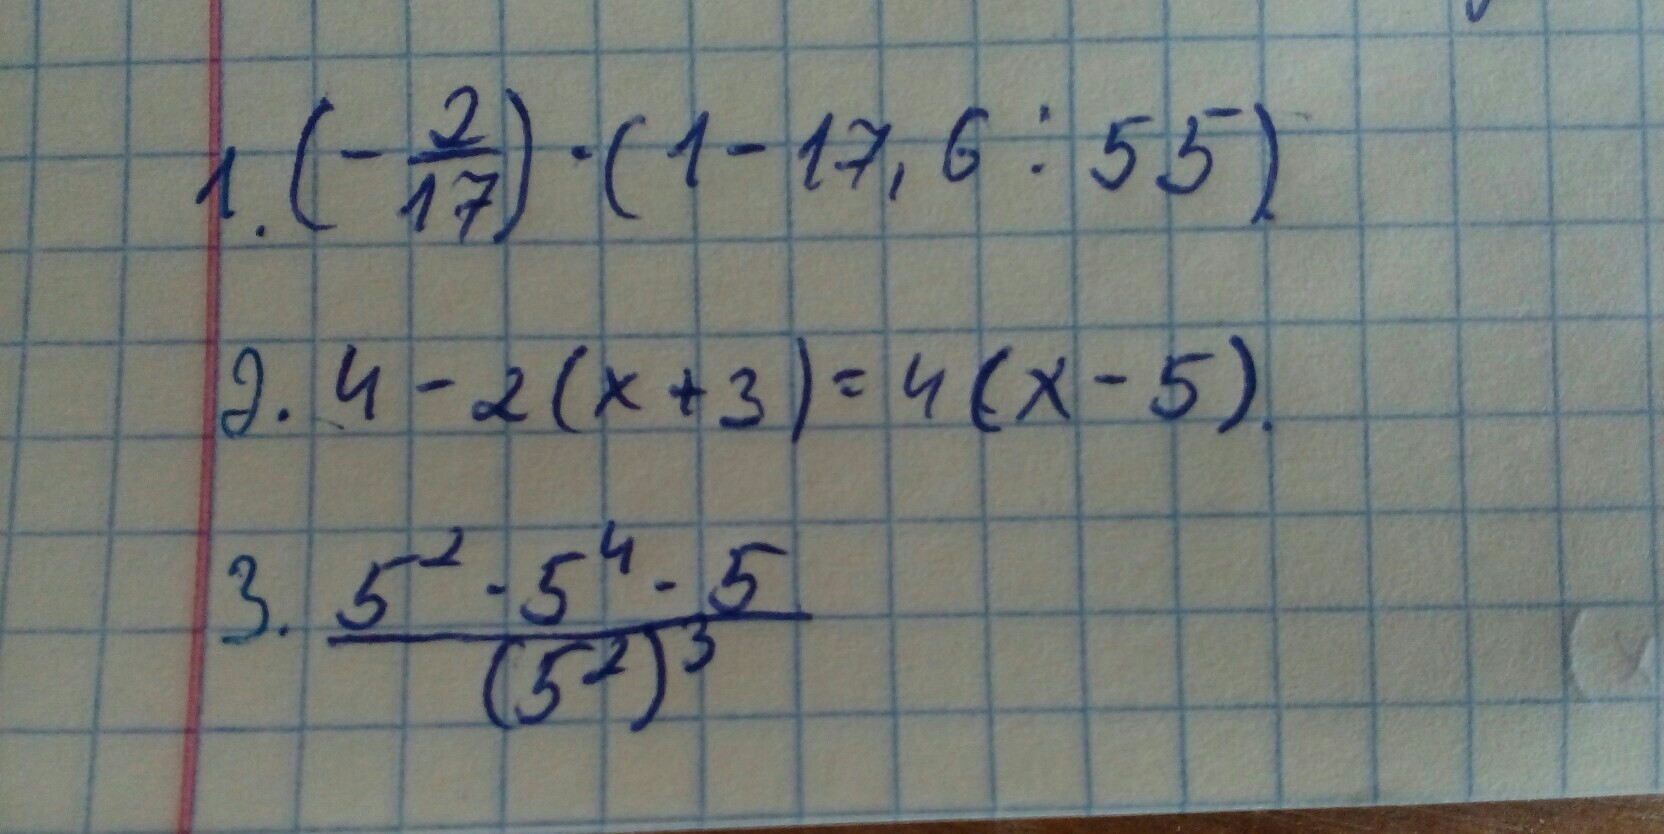 1. (-2/17) · (1 - 17,6 : 55)
2. 4 - 2(x + 3) = 4(x - 5).
3. 5² · 5⁴ · 5 / (5²)³